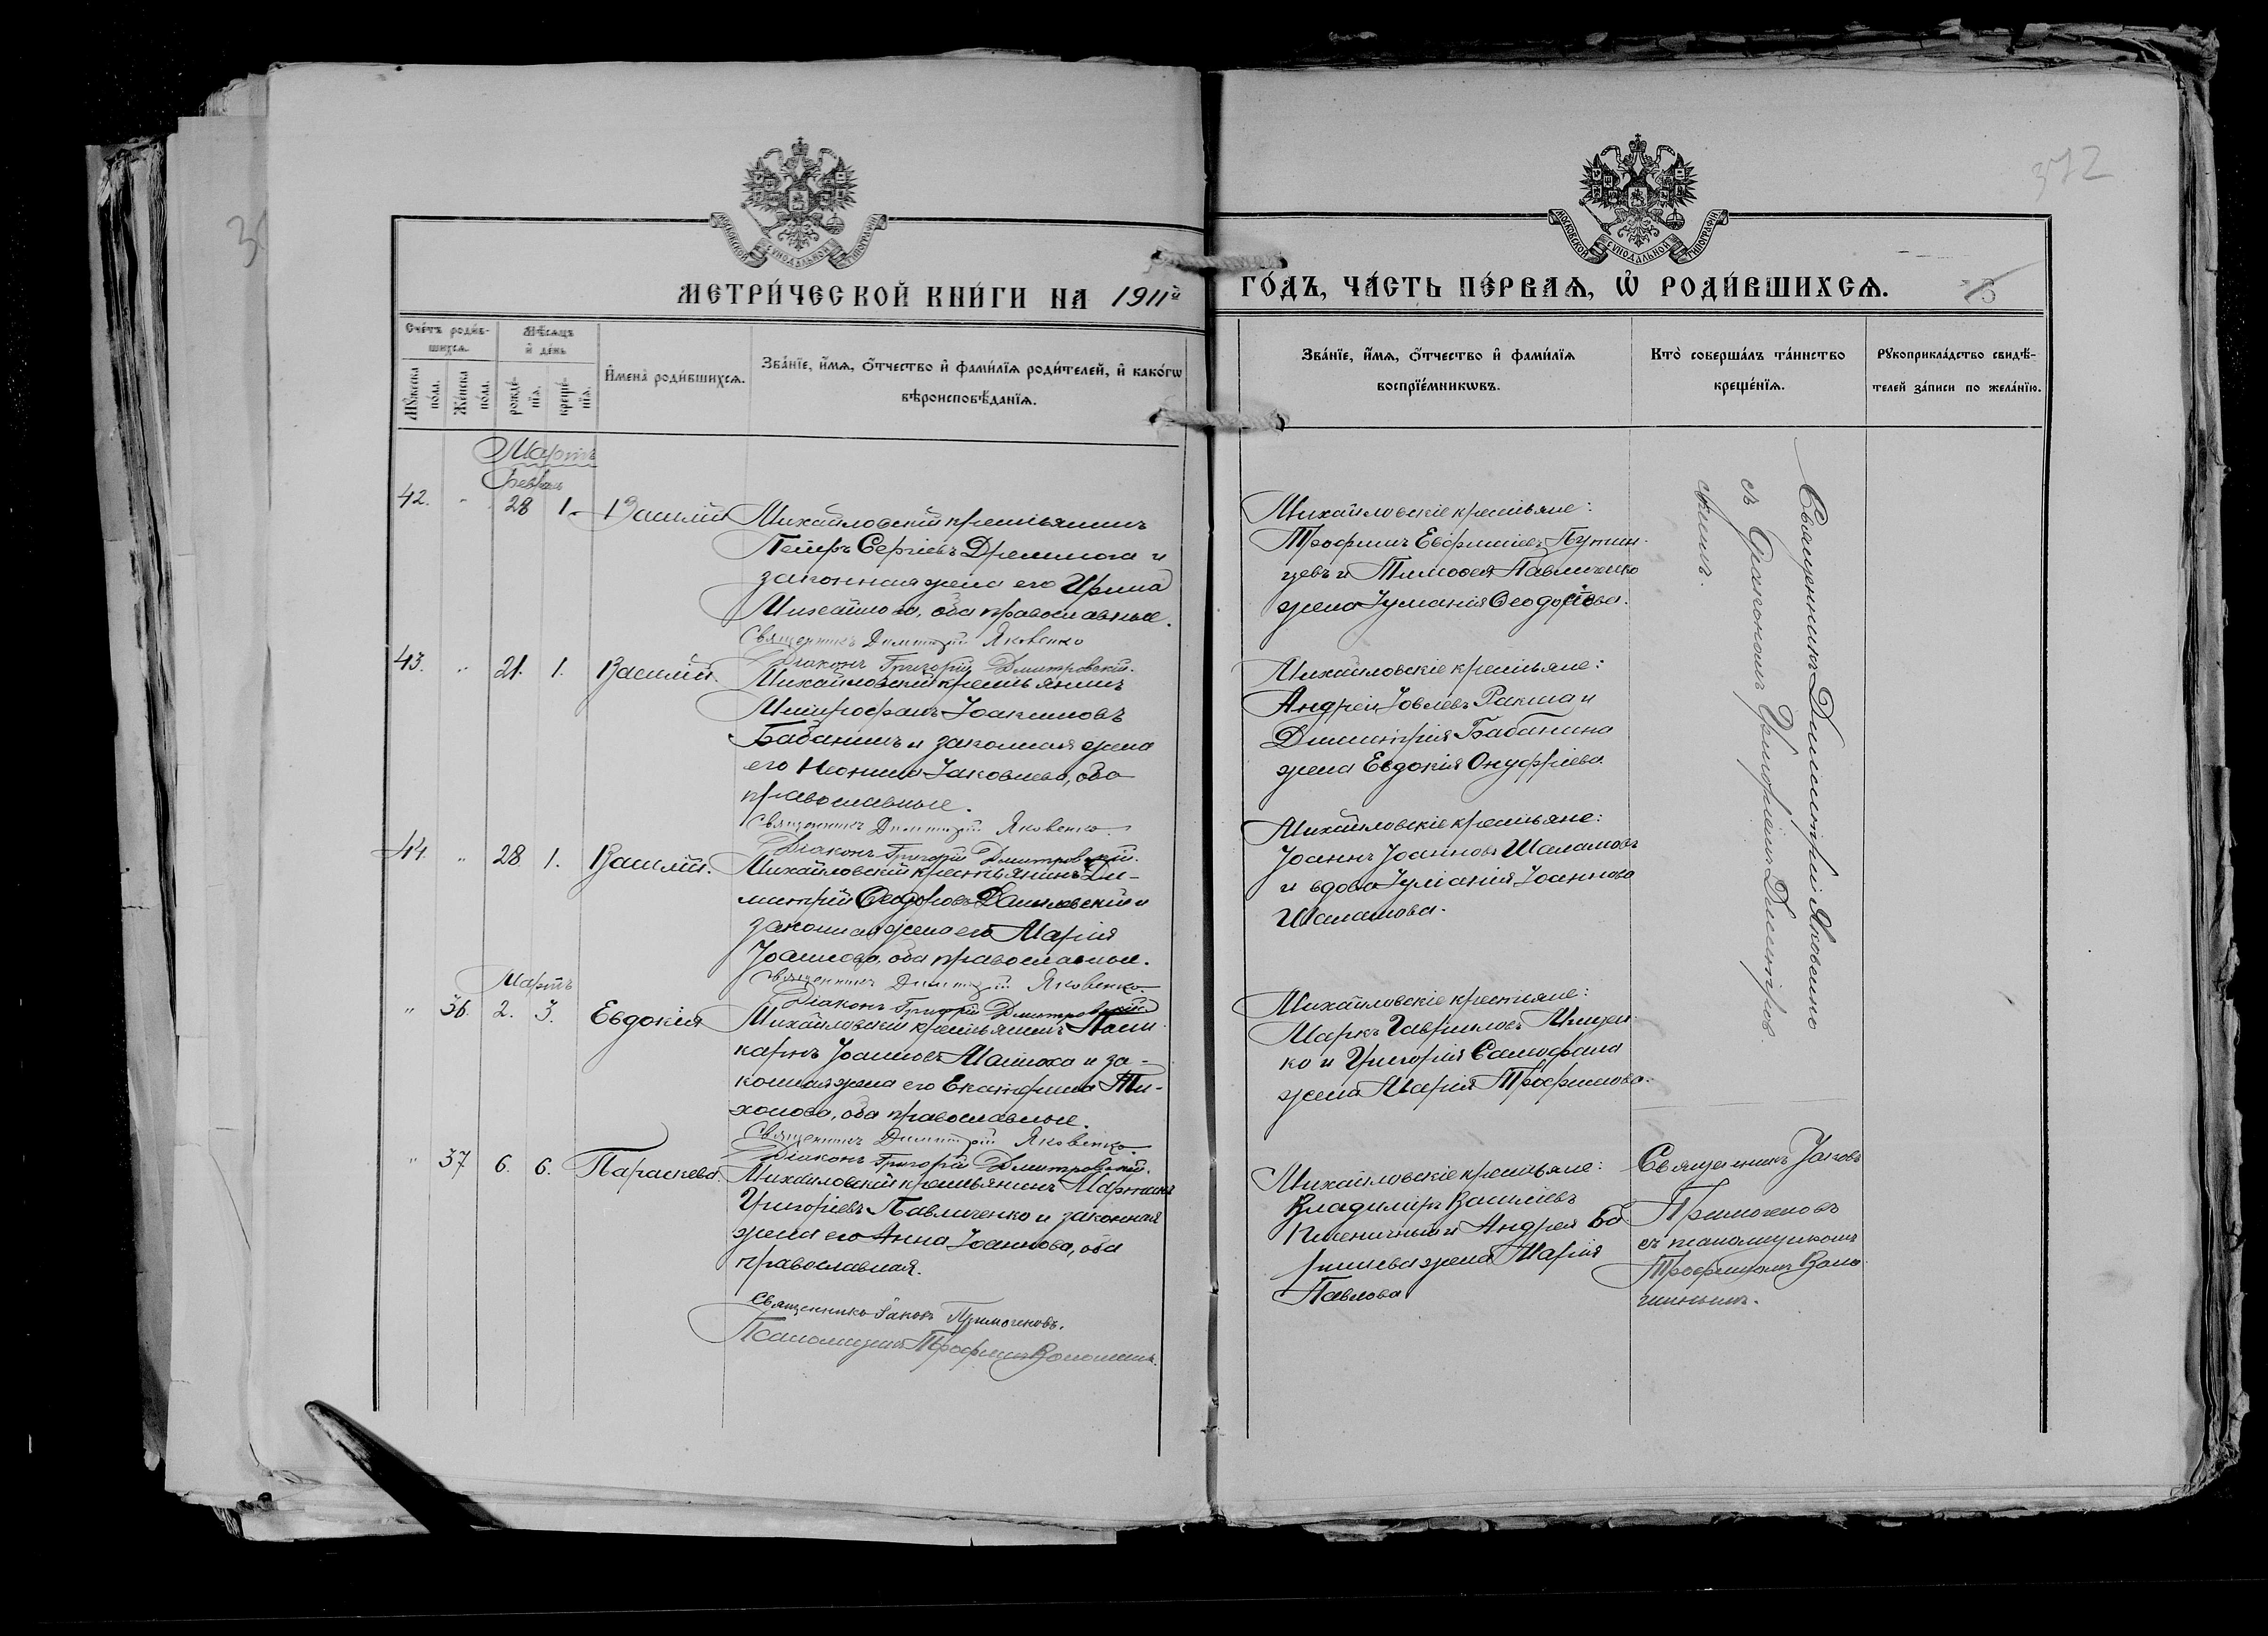 372
МОСКОВСКОЙ СѴНОДАЛЬНОЙ ТИПОГРАФІИ
МОСКОВСКОЙ СѴНОДАЛЬНОЙ ТИПОГРАФІИ
МЕТРИ́ЧЕСКОЙ КНИ́ГИ НА 1911й ГО́ДЪ, ЧА́СТЬ ПЕ́РВАѦ, Ѽ РОДИ́ВШИХСѦ.
Сче́тъ роди́в-
шихсѧ.
Мꙋ́жеска по́ла.
Же́нска по́ла.
Мѣ́сѧцъ и҆ де́нь
рожде́нїѧ.
креще́нїѧ.
И҆мена̀ роди́вшихсѧ.
Зва́нїе, и҆́мѧ, ѻ҆́тчество и҆ фами́лїѧ роди́телей, и҆ како́гѡ
вѣроисповѣ́данїѧ.
Зва́нїе, и҆́мѧ, ѻ҆́тчество и҆ фами́лїѧ
воспрїе́мникѡвъ.
Кто̀ соверша́лъ та́инство
креще́нїѧ.
Рꙋкоприкла́дство свидѣ́-
телей за́писи по жела́нїю.
Мартъ
Феврал
42. " 28 1. Василій
Михайловскій крестьянинъ
Петръ Сергіевъ Дремлюга и
законная жена его Ирина
Михайлова, оба православные.
Священникъ Димитрій Яковенко
Діаконъ Григорій Дмитровскій.
Михайловскіе крестьяне:
Трофимъ Евфиміевъ Путин-
цевъ и Тимофея Павличенко
жена Іуліанія Ѳеодорова.
Священникъ Димитрій Яковенко
съ діакономъ Григоріемъ Дмитров
скимъ.
43. " 21. 1. Василій.
Михайловскій крестьянинъ
Митрофанъ Іоакимовъ
Бабанинъ и законная жена
его Неонила Іаковлева, оба
православные.
Священникъ Димитрій Яковенко
Діаконъ Григорій Дмитровскій.
Михайловскіе крестьяне:
Андрей Іовлевъ Ракша и
Димитрія Бабанина
жена Евдокія Онуфріева.
44. " 28 1. Василій.
Михайловскій крестьянинъ Ди-
митрій Ѳеодоровъ Данилевскій и
законная жена его Марія
Іоаннова, оба православные.
Священникъ Димитрій Яковенко
Діаконъ Григорій Дмитровскій
Михайловскіе крестьяне:
Іоаннъ Іоанновъ Шаламовъ
и вдова Іуліанія Іоаннова
Шаламова.
Мартъ
" 36. 2. 3. Евдокія
Михайловскій крестьянинъ
карпъ Іоанновъ и за-
конная жена его Екатерина Ти-
хонова, оба православные.
Священникъ Димитрій Яковенко
Діаконъ Григорій Дмитровскій.
Михайловскіе крестьяне:
Маркъ Гавриловъ Мищен-
ко и Григорія Самофала
жена Марія Трофимова.
" 37 6. 6. Параскева.
Михайловскій крестьянинъ Мартинъ
Григоріевъ Павличенко и законная
жена его Анна Іоаннова, оба
православная.
Священникъ Іаковъ Примогеновъ.
Псаломщикъ Трофимъ Волошинъ.
Михайловскіе крестьяне:
Владиміръ Василіевъ
Пшеничный и Андрея Ба
рышева жена Марія
Павлова
Священникъ Іаковъ
Примогеновъ
съ псаломщикомъ
Трофимомъ Воло
шинымъ.